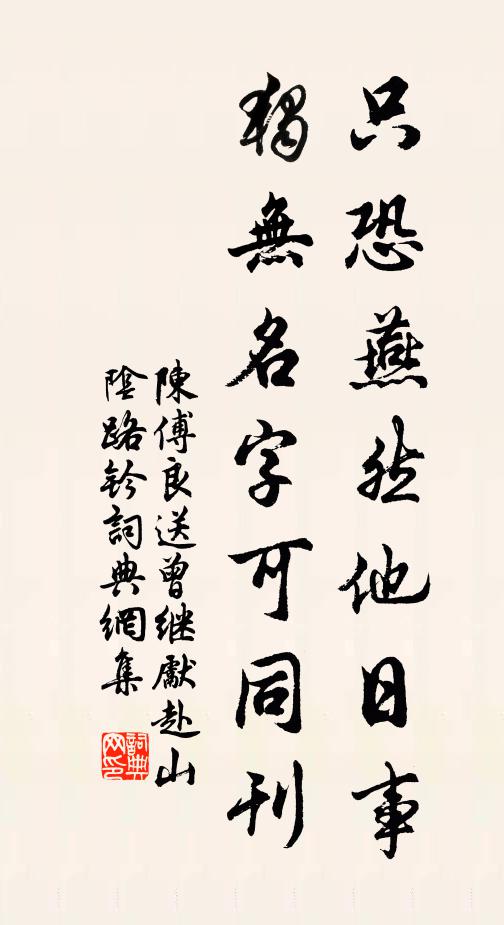 只恐燕然他日事
獨無名字可同刊
陳傅良送曾继獻赴山
陰路鈐詞典網集
詞典
网印